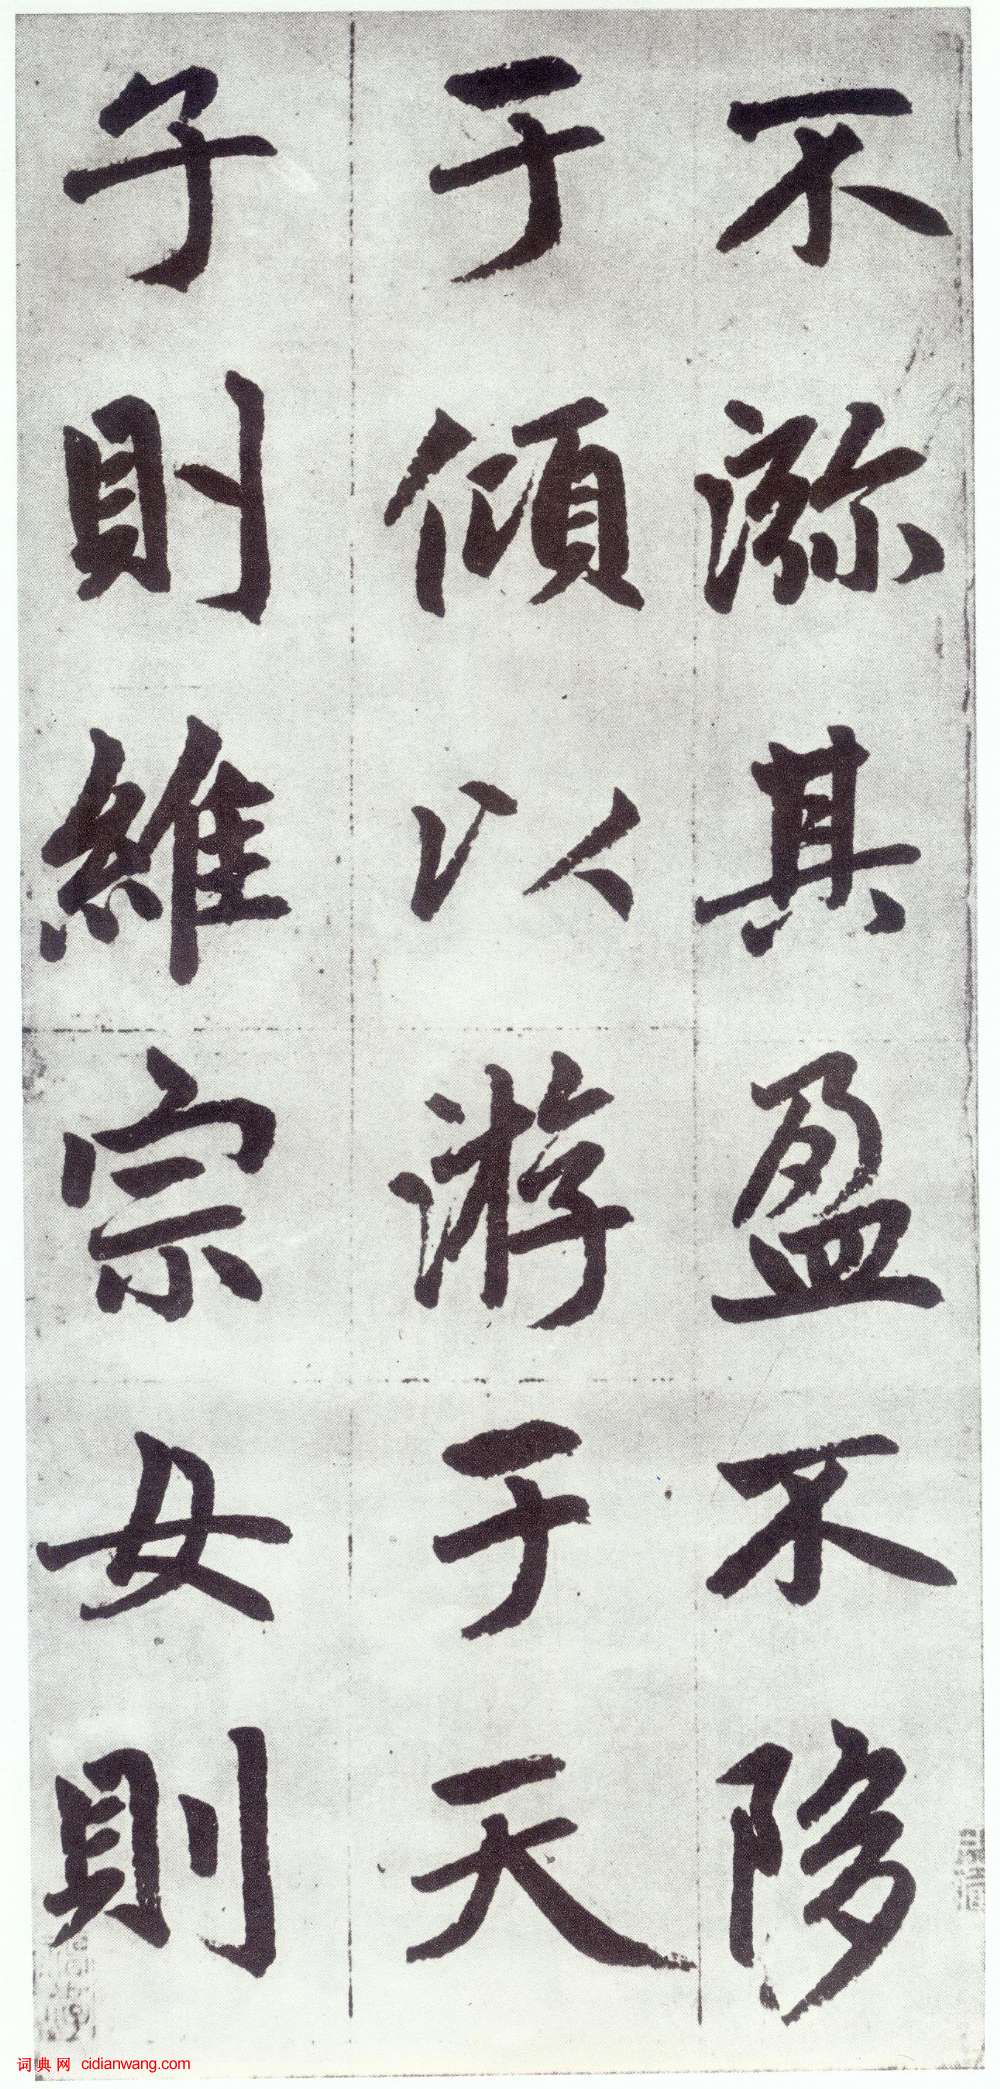 不㳽其盈不陊
于傾以游于天
子則維宗女則
词典网 cidianwang.com